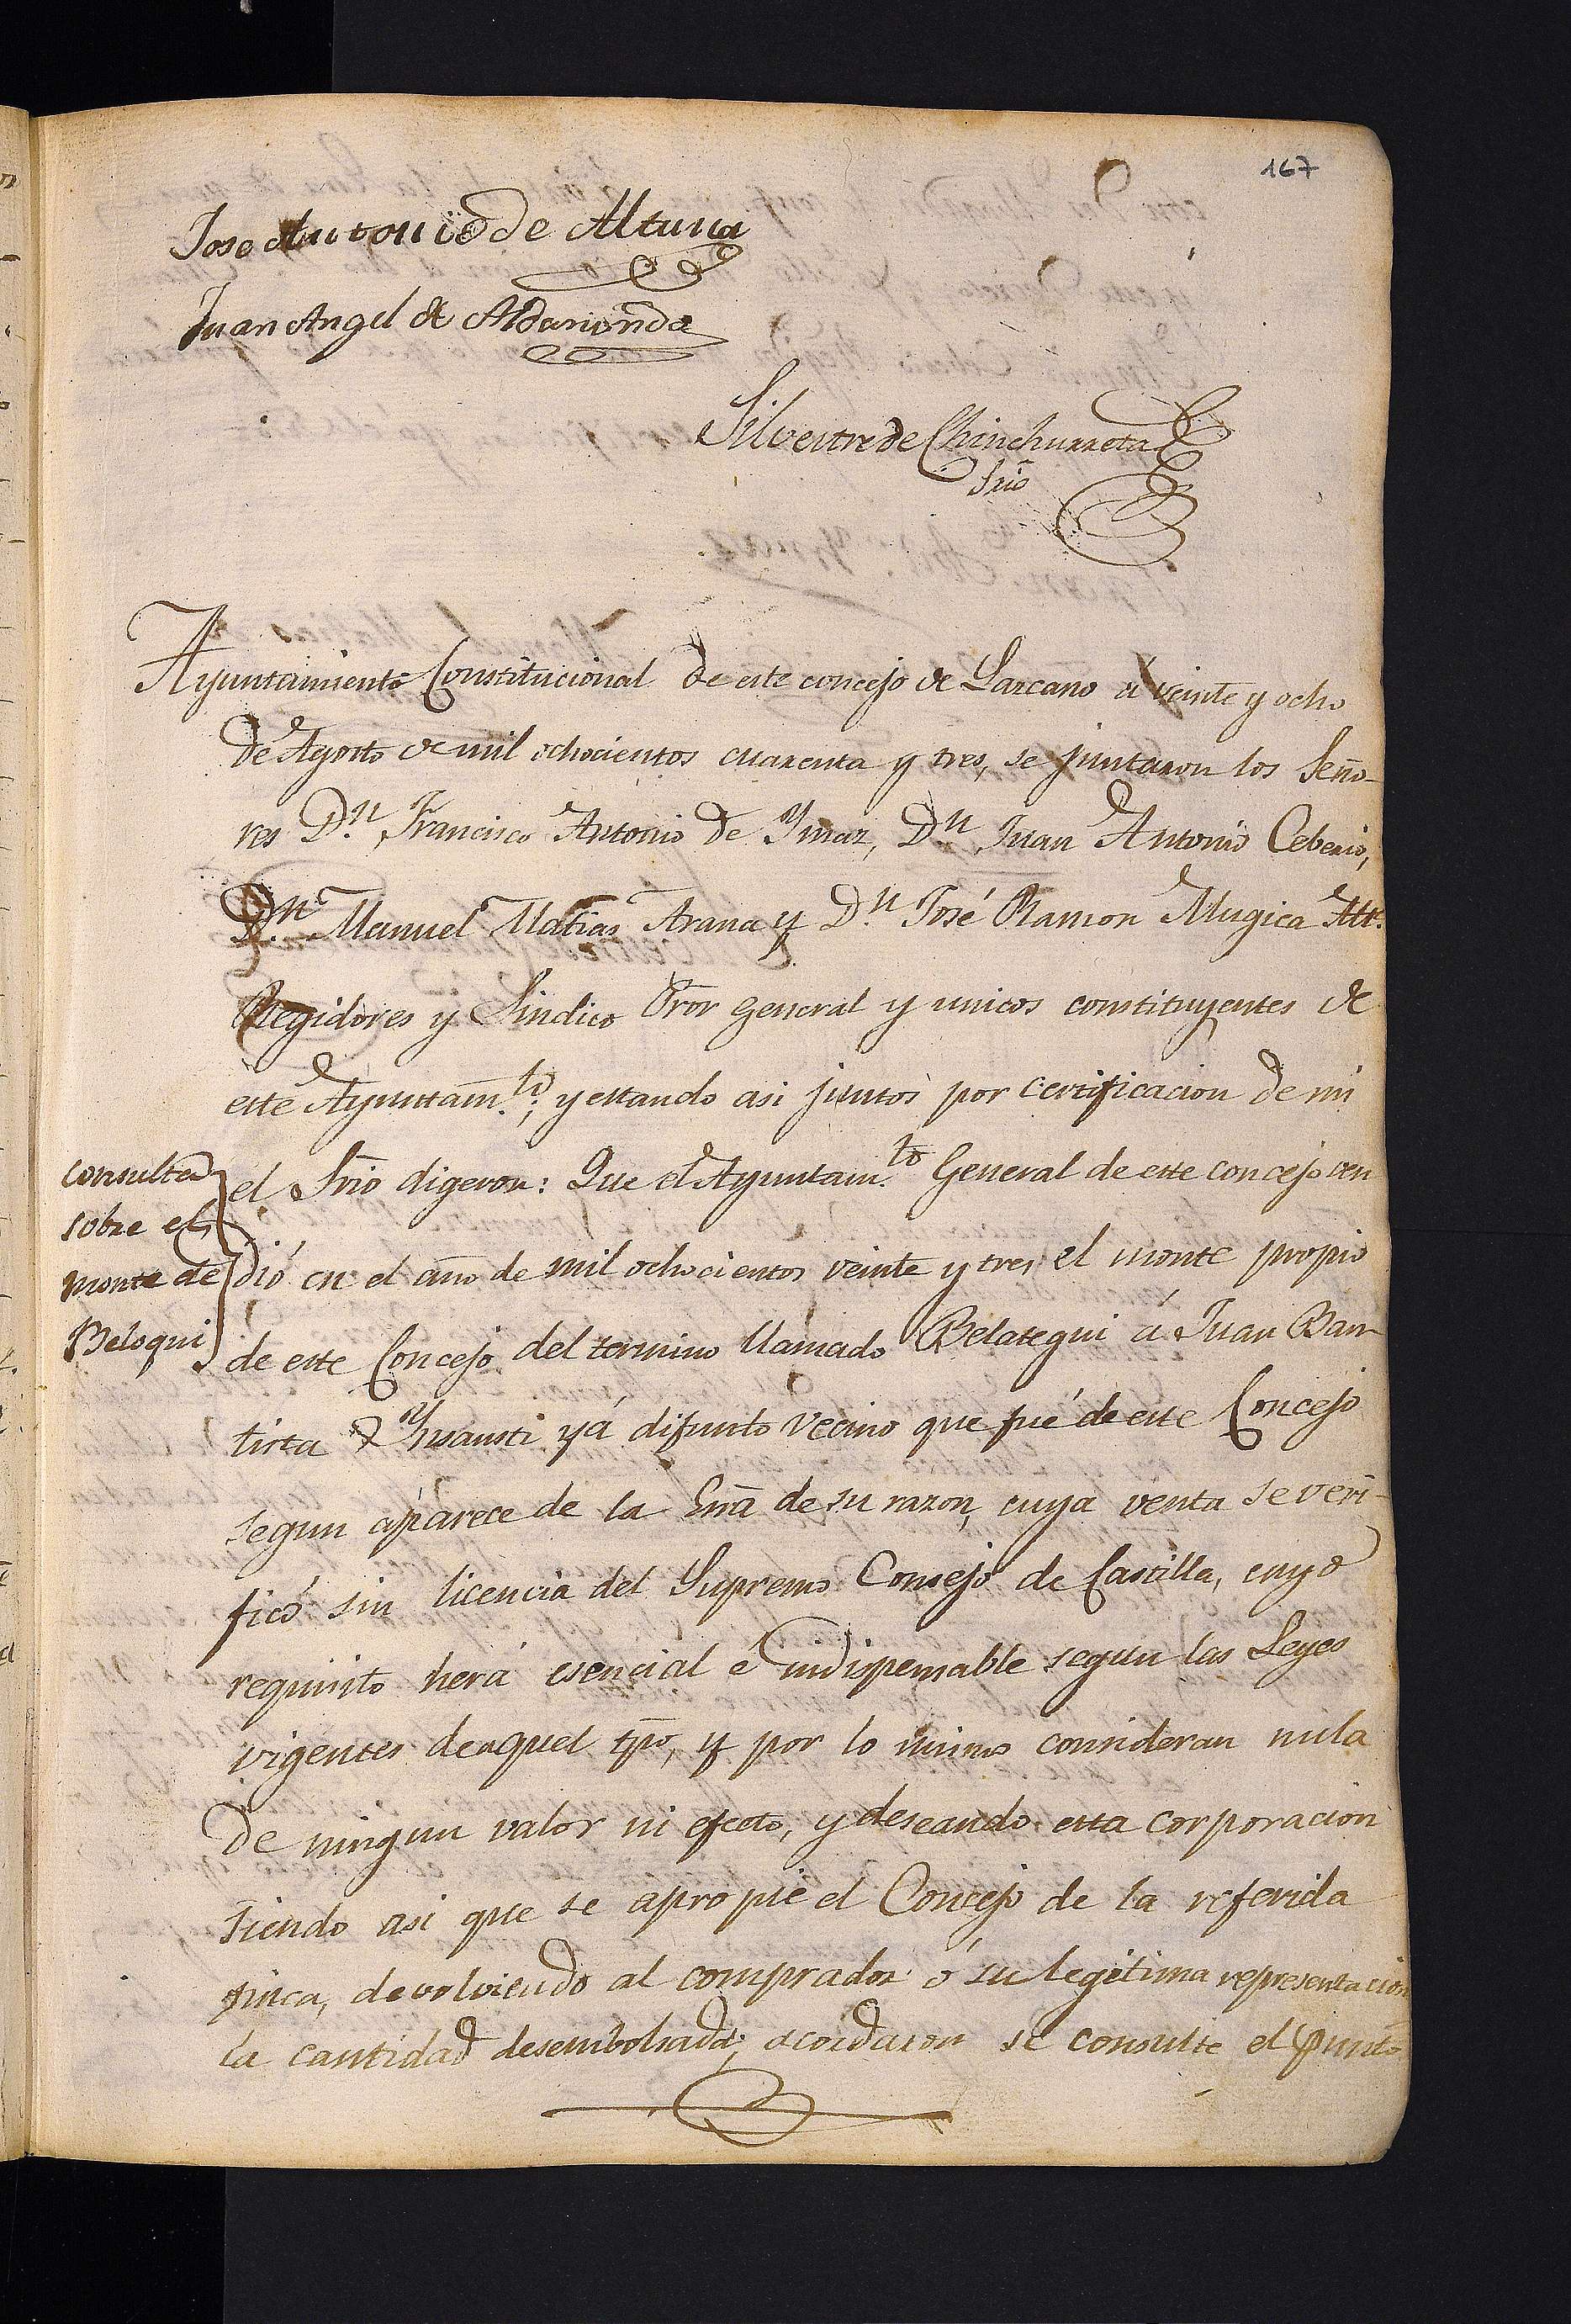 167
Jose Antonio de Altuna
Juan Angel de Aldanondo
Silvestre de Chinchurreta
Srio
Ayuntamiento Constitucional de este concejo de Lazcano á veinte y ocho
de Agosto de mil ochocientos cuarenta y tres, se juntaron los Seño-
res D.n Francisco Antonio de Ymaz, D.n Juan Antonio Ceberio,
D.n Manuel Matias Arana y D.n José Ramon Mugica Alt.
Regidores y Sindico Pror general y unicos constituyentes de
este Ayuntam.to; y estando asi juntos por certificacion de mi
el Srio digeron: Que el Ayuntam.to General de este concejo ven
dió en el año de mil ochocientos veinte y tres el monte propio
de este Concejo del termino llamado Belategui á Juan Bau-
tista de Ynsausti yá difunto vecino que fué de este Concejo
segun aparece de la Esra de su razon, cuya venta se veri-
ficó sin licencia del Supremo Consejo de Castilla, cuyo
requisito herá esencial é indispensable segun las Leyes
vigentes de aquel tpo, y por lo mismo consideran nula
de ningun valor ni efecto, y deseando esta corporacion
siendo asi que se apropie el Concejo de la referida
finca, devolviendo al comprador ó su legitima representacion
la cantidad desembolsada; acordaron se consulte el punto
consulta
sobre el
monte de
Beloqui